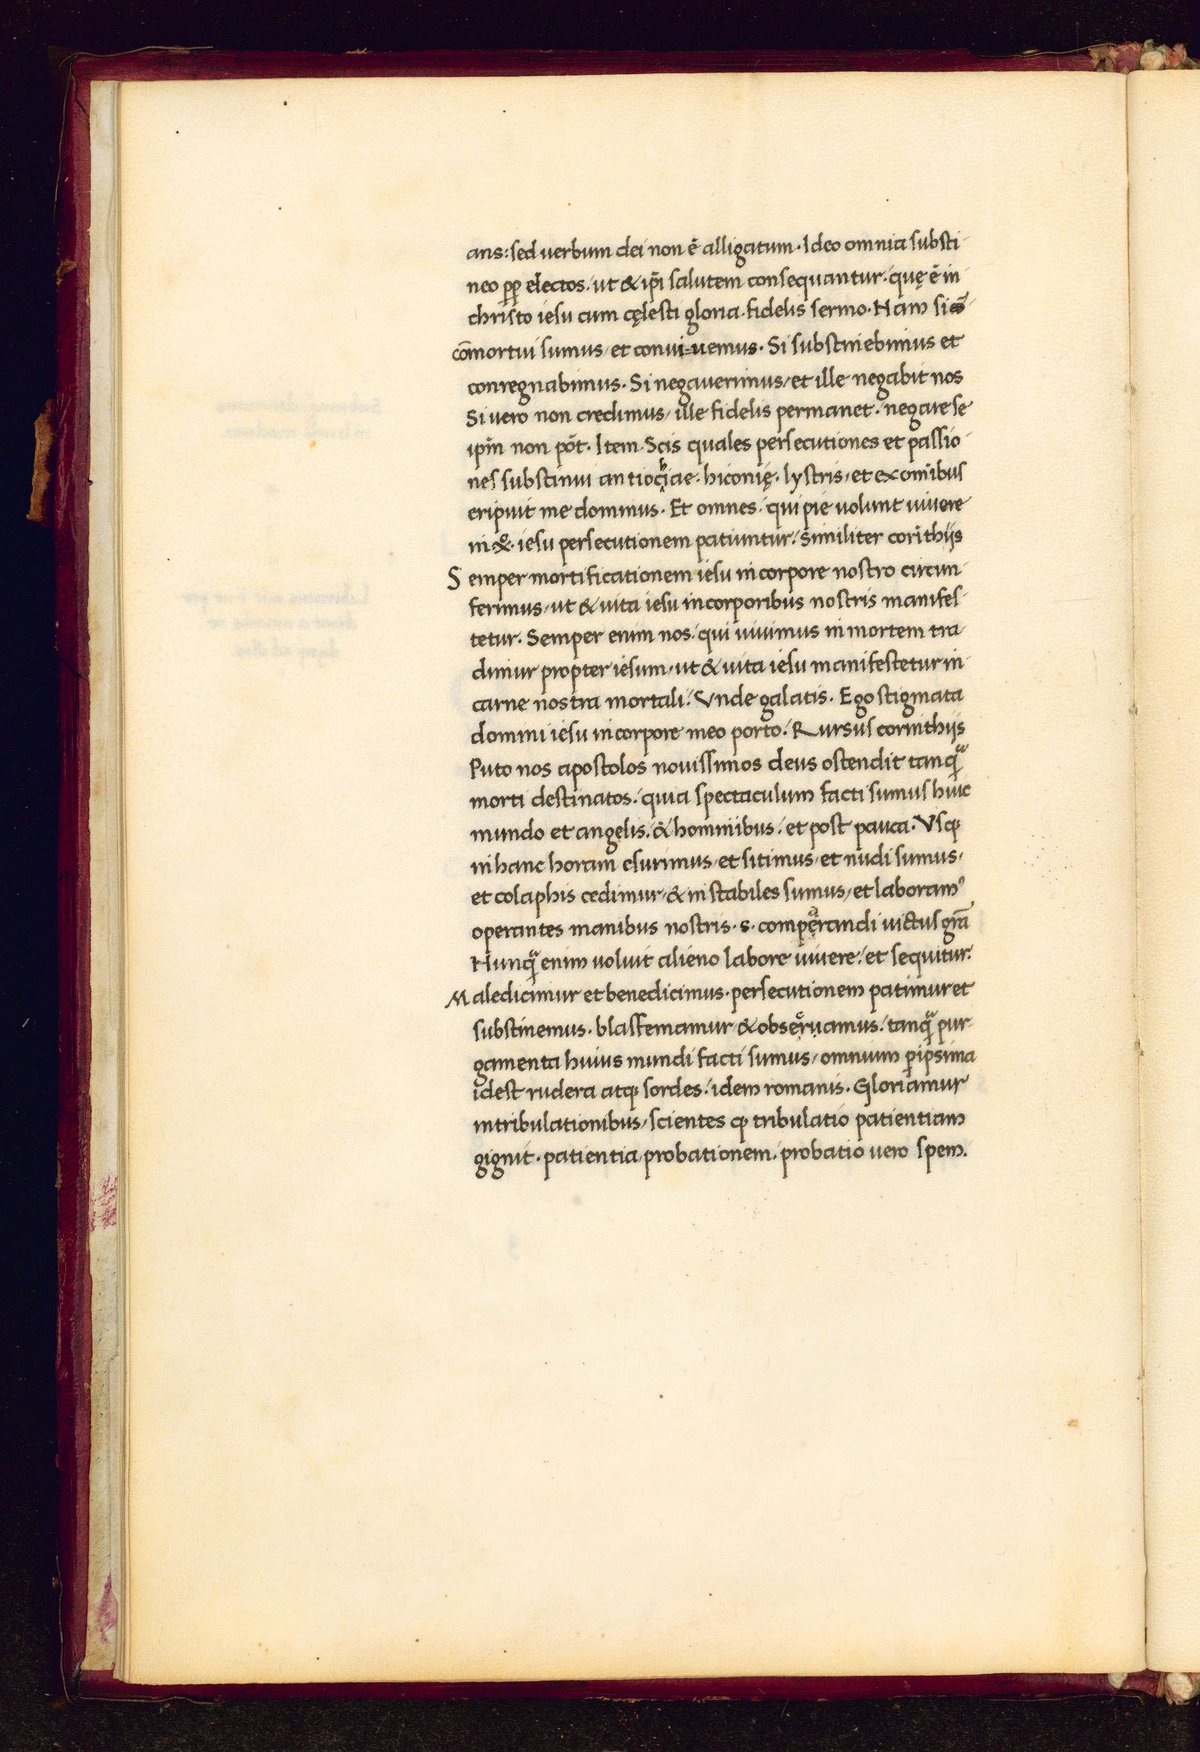 ans: sed verbum dei non ē alligatum. Ideo omnia substi
neo pp̄ electos. ut & ip̄i salutem consequantur. quę ē in
christo iesu cum cęlesti gloria. fidelis sermo. Nam si
cōmortui sumus, et convi=uemus. Si substiniebimus et
conregnabimus. Si negauerimus, et ille negabit nos
Si vero non credimus, ille fidelis permanet. negare se
ip̄m non pōt. Item. Scis quales persecutiones et passio
nes substinui antiochiae. hiconię. lystris, et ex om̄ibus
eripuit me dominus. Et omnes. qui pie uolunt uiuere
in . iesu persecutionem patiuntur. Similiter corīthijs
Semper mortificationem iesu in corpore nostro circun
ferimus, ut & uita iesu in corporibus nostris manifes
tetur. Semper enim nos. qui uiuimus in mortem tra
dimur propter iesum, ut & uita iesu manifestetur in
carne nostra mortali. Vnde galatis. Ego stigmata
domini iesu in corpore meo porto. Rursus corinthijs
Puto nos apostolos nouissimos deus ostendit tanqͣ
morti destinatos. quia spectaculum facti sumus huic
mundo et angelis. & hominibus. et post pauca. Vsqꝫ
in hanc horam esurimus, et sitimus, et nudi sumus,
et colaphis cedimur, & instabiles sumus, et laboramꝰ
operantes manibus nostris. s. comperandi uictus grā
Nunqͣ enim uoluit alieno labore uiuere. et sequitur.
Maledicimur et benedicimus. persecutionem patimur et
substinemus. blasfemamur & obseruamus. tanqͣ pur
gamenta huius mundi facti sumus, omnium ꝑipsima
idest rudera atqꝫ sordes. idem romanis. Gloriamur
in tribulationibus, scientes ꝙ tribulatio patientiam
gignit. patientia probationem. probatio uero spem.